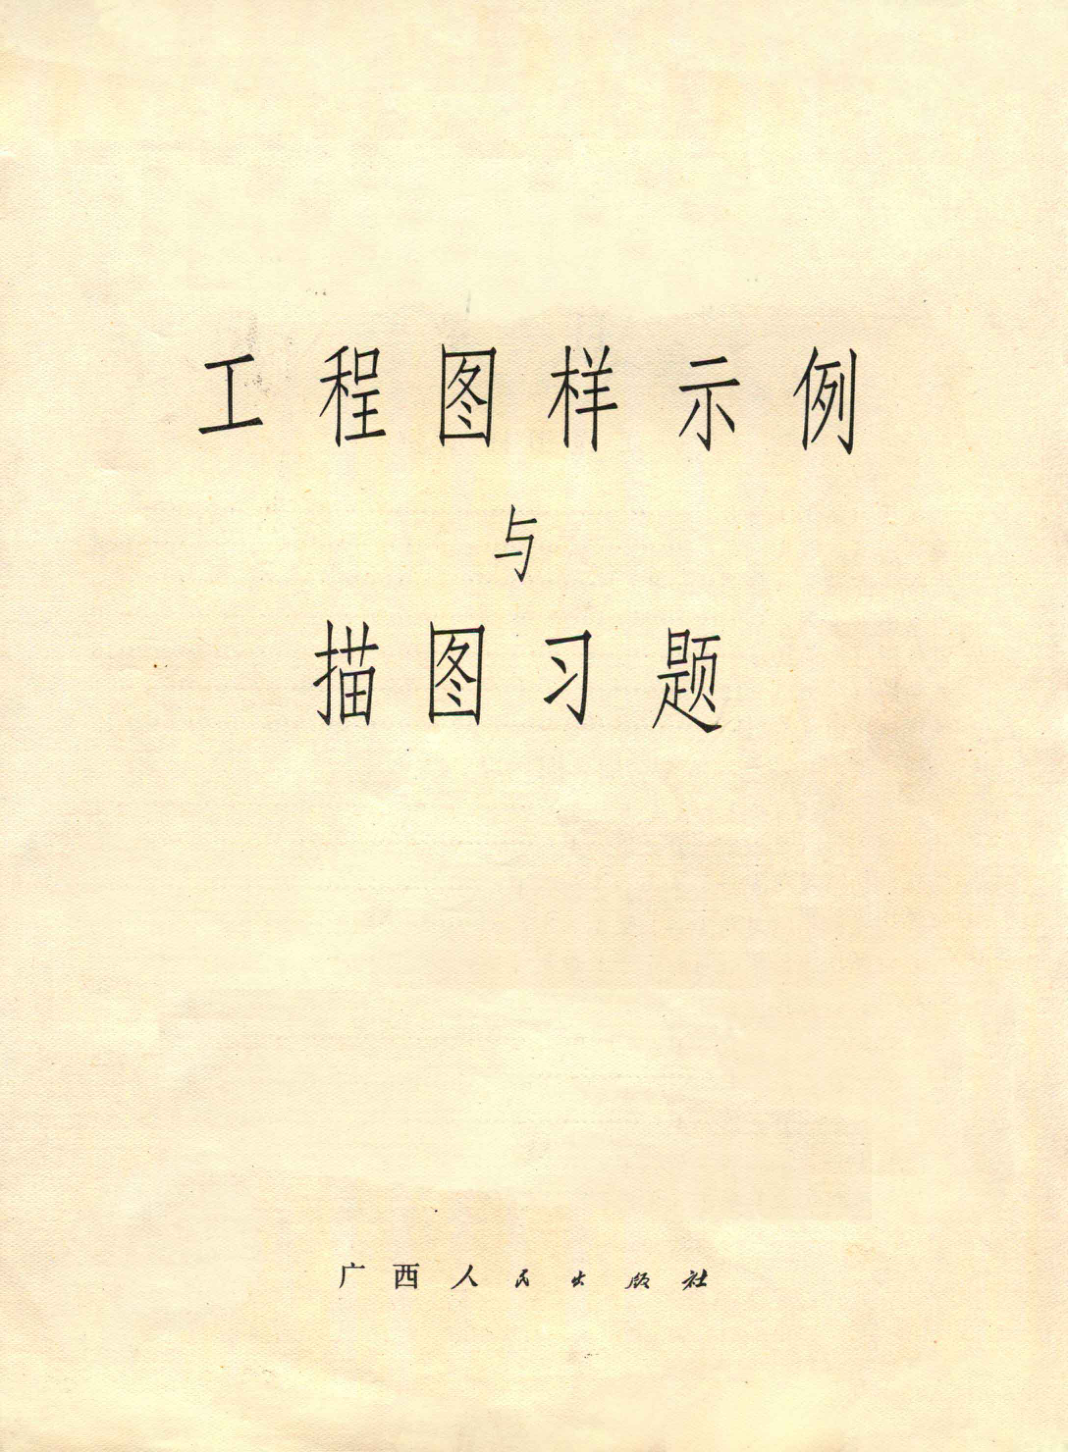 工程图样示例
与
描图习题
广西人民出版社